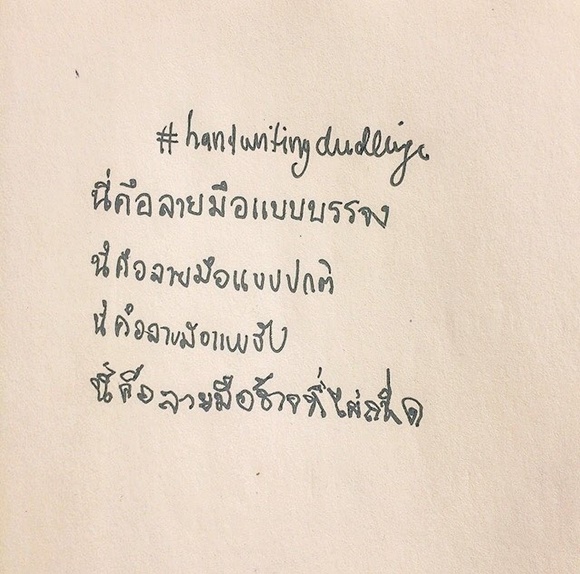 #handwritingchallenge
นี่คือลายมือแบบบรรจง
นี่คือลายมือแบบปกติ
นี่คือลายมือแบบรีบ
นี่คือลายมือซ้ายที่ไม่ถนัด